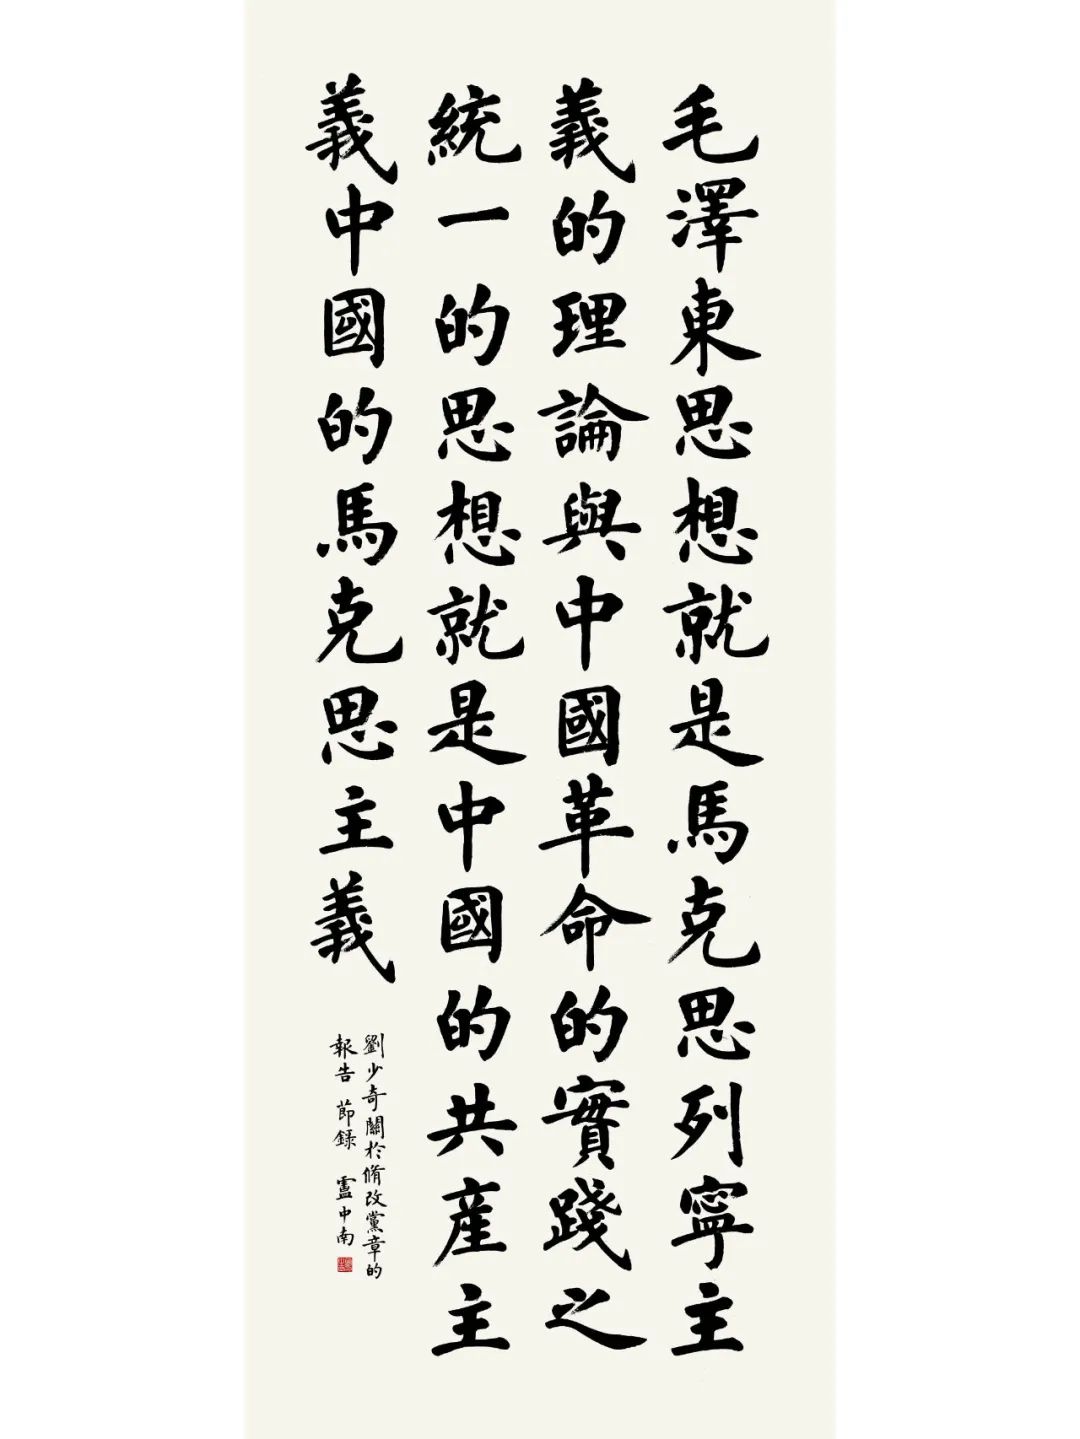 毛澤東思想就是馬克思列寧主
義的理論與中國革命的實踐之
統一的思想就是中國的共產主
義中國的馬克思主義
劉少奇關於脩改黨章的
報告 節錄 盧中南